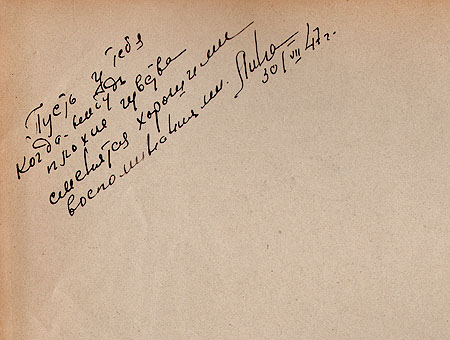 Пусть у тебя
когда-нибудь
плохие чувства
сменятся хорошими
воспоминаниями.
30/VII 47 г.